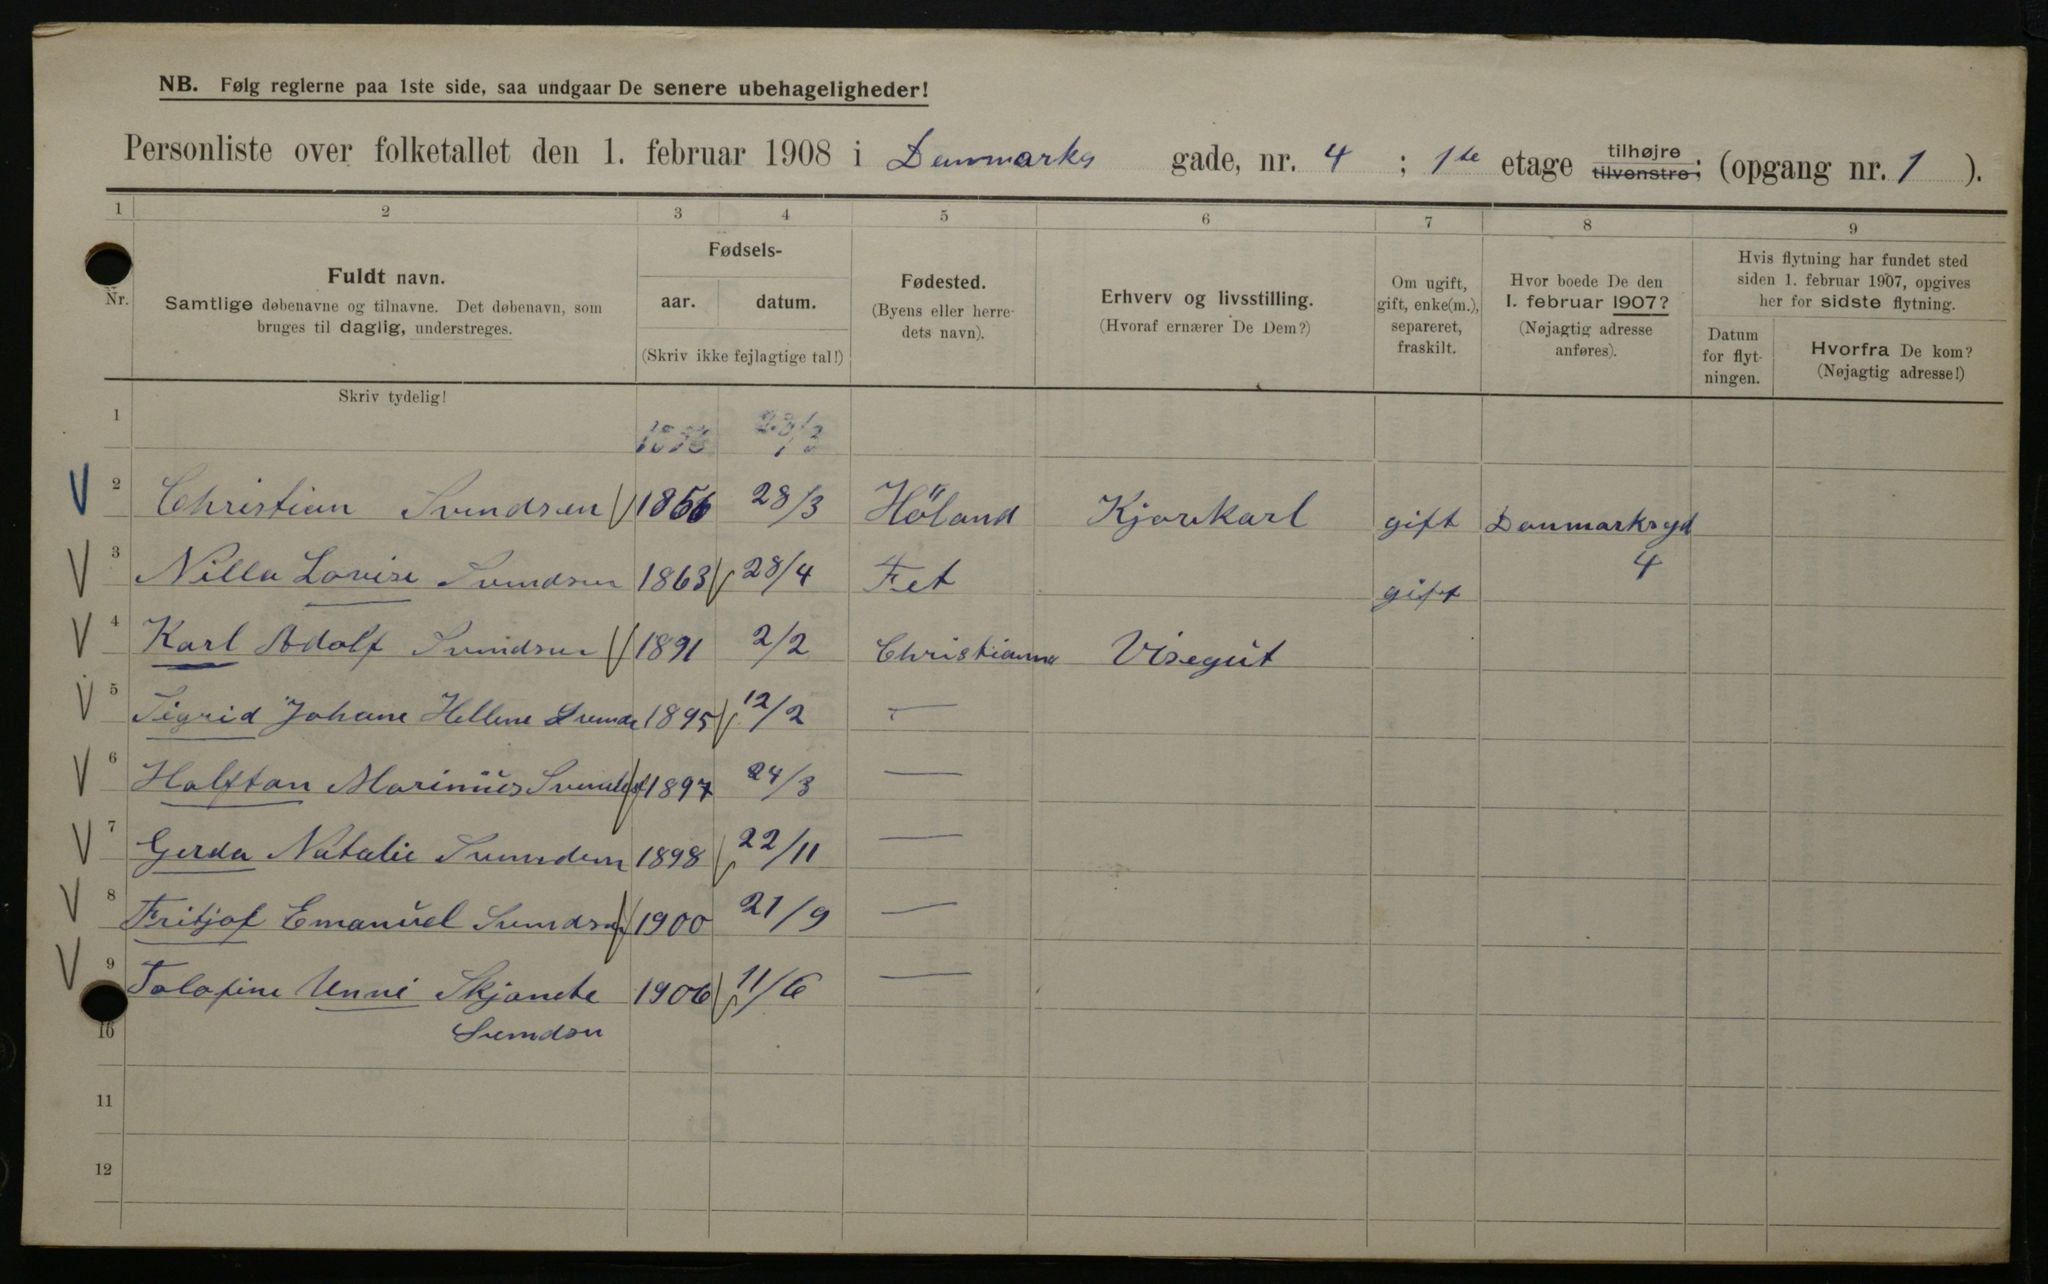 NB. Følg reglerne paa 1ste side, saa undgaar De senere ubehageligheder!
Personliste over folketallet den 1. februar 1908 i Danmarks gade, nr. 4 ; 1te etage tilhøjre tilvenstre; (opgang nr. 1 ).
1 2 3 4 5 6 7 8 9
Nr.
Fuldt navn.
Samtlige døbenavne og tilnavne. Det døbenavn, som
bruges til daglig, understreges.
Fødsels-
aar. datum.
(Skriv ikke fejlagtige tal!)
Fødested.
(Byens eller herre-
dets navn).
Erhverv og livsstilling.
(Hvoraf ernærer De Dem?)
Om ugift,
gift, enke(m.),
separeret,
fraskilt.
Hvor boede De den
1. februar 1907?
(Nøjagtig adresse
anføres).
Hvis flytning har fundet sted
siden 1. februar 1907, opgives
her for sidste flytning.
Datum
for flyt-
ningen.
Hvorfra De kom?
(Nøjagtig adresse!)
Skriv tydelig!
1
2 Christian Svendsen 1856 28/3 Höland Kjørekarl gift Danmarksgd
4
3 Nilla Lovise Svendsen 1863 28/4 Fet gift
4 Karl Adolf Svendsen 1891 2/2 Christiania Visegut
5 Sigrid Johane Hellene Svends 1895 12/2 —
6 Halftan Marinius Svendsen 1897 24/3 —
7 Gerda Natalie Svendsen 1898 22/11 —
8 Fritjof Emanuel Svendsen 1900 21/9 —
9 Unni 1906 11/6 —
10 Svendsen
11
12